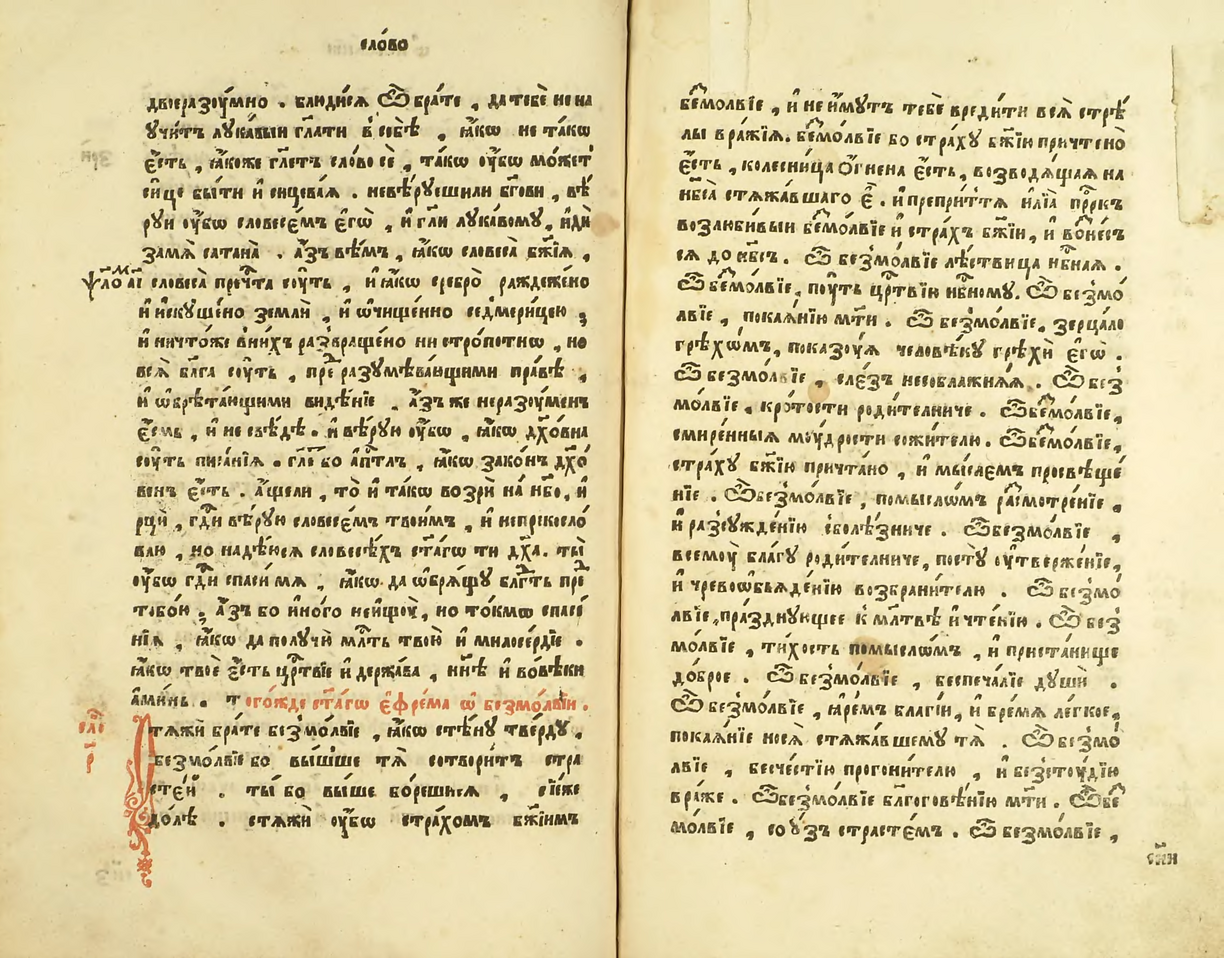 сло́во
двоеразꙋ́мно . блюди́сѧ Ѽ бра́те , да тебѐ не на
ꙋ҆чи́тъ лꙋка́выи гл҃ати в̾ себѣ̀ , ꙗ҆́кѡ не та́кѡ
є҆́сть , ꙗ҆́коже гл҃етъ сло́во сѐ , та́кѡ ᲂу҆́бѡ мо́жет̾
си́це бы́ти и҆ сицева́ѧ . невѣ́рꙋешили бг҃ови , вѣ́
рꙋи ᲂу҆́бѡ словесє́мъ є҆гѡ̀ , и҆ гл҃и лꙋка́вомꙋ , и҆дѝ
замѧ̀ сатана̀ . а҆́зъ вѣ́мъ , ꙗ҆́кѡ словеса̀ бж҃їѧ ,
ѱало́м аі словеса̀ пречⷭ҇та сꙋ́ть , и҆ ꙗ҆́кѡ сребро̀ раждеже́но
и҆ искꙋше́но землѝ , и҆ ѡ҆чище́нно седмери́цею ;
и҆ ничто́же вни́хъ развраще́но ни стро́потнѡ , но
всѧ̀ бл҃га сꙋ́ть , пре́ⷣ разꙋмѣва́ющими пра́вѣ ,
и҆ ѡ҆брѣта́ющими ви́дѣнїе . а҆́зъ же неразꙋ́менъ
є҆́смь , и҆ не свѣ́дѣ . и҆ вѣ́рꙋю ᲂу҆́бѡ , ꙗ҆́кѡ дх҃о́вна
сꙋ́ть писа́нїѧ . гл҃е́ⷮ бо а҆пⷭ҇тлъ , ꙗ҆́кѡ зако́нъ дх҃о́
венъ є҆́сть . а҆́щели , то̀ и҆ та́кѡ возрѝ на́ нб҃о , и҆
рцы̀ , гдⷭ҇и вѣ́рꙋю словесє́мъ твои́мъ , и҆ непрекосло́
влю , но надѣ́юсѧ словесѣ́хъ ст҃а́гѡ ти дх҃а . ты̀
ᲂу҆́бѡ гдⷭ҇и спаси́ мѧ , ꙗ҆́кѡ да ѡ҆брѧ́щꙋ блгⷣть пре́ⷣ
тобо́ю , а҆́зъ бо и҆но́го неищꙋ̀ , но то́кмѡ спасе́
нїѧ , ꙗ҆́кѡ да полꙋчꙋ̀ млⷭ҇ть твою̀ и҆ милосе́рдїе .
ꙗ҆́кѡ твоѐ є҆́сть црⷭ҇твїе и҆ держа́ва , нн҃ѣ и҆ вовѣ́ки
а҆ми́нь . тогожде ст҃а́гѡ є҆фре́ма ѡ҆ безмо́лвїи .
сло́ⷡ҇ Стѧжѝ бра́те безмо́лвїе , ꙗ҆́кѡ стѣ́нꙋ тверⷣꙋ̀ ,
р҃ безмо́лвїе бо вы́шше тѧ̀ сотвори́тъ стра
сте́й . ты́ бо вы́ше бо́решисѧ , сїе́же
до́лѣ . стѧжѝ ᲂу҆́бѡ стра́хомъ бж҃їимъ
беⷥ҇мо́лвїе , и҆ не и҆́мꙋтъ тебѐ вреди́ти всѧ̀ стрѣ́
лы вра́жїѧ . беⷥ҇мо́лвїе бо стра́хꙋ бж҃їю причтено̀
є҆́сть , колесни́ца О҆́гнена є҆́сть , возводѧ́щаѧ на
нб҃са̀ стѧжа́вшаго є҆̀ . и҆ преприттѧ и҆лїа̀ прⷪ҇ркъ
возлюби́выи беⷥ҇мо́лвїе и҆ стра́хъ бж҃їи , и҆ воⷥ҇несе́
сѧ до нб҃съ . Ѽ безмо́лвїе лѣ́ствица нбⷭ҇наѧ .
Ѽ беⷥ҇мо́лвїе , пꙋ́ть црⷭ҇твїю нбⷭ҇номꙋ . Ѽ безмо́
лвїе , покаѧ́нїю мт҃и . Ѽ безмо́лвїе , зерца́ло
грѣхѡ́мъ , показꙋ́ѧ человѣ́кꙋ грѣхѝ є҆гѡ̀ .
Ѽ безмо́лвїе , сле́зъ несоблажнѧ́ѧ . Ѽ без
мо́лвїе , кро́тости роди́телниче . Ѽ беⷥ҇мо́лвїе ,
смире́нныѧ мꙋ́дрости сожи́телю . Ѽ беⷥ҇мо́лвїе ,
стра́хꙋ бж҃їю причта́но , и҆ мы́слемъ просвѣще́
нїе . Ѽ безмо́лвїе , по́мысломъ раⷭ҇смотре́нїе ,
и҆ разсꙋжде́нїю сболѣ́зниче . Ѽ безмо́лвїе ,
всемꙋ̀ бла́гꙋ роди́телниче , постꙋ̀ ᲂу҆твержє́нїе ,
и҆ чревоѡбъѧде́нїю возбрани́телю . Ѽ безмо́
лвїе , пра́зднꙋющее к̾ млт҃вѣ и҆ чте́нїю . Ѽ без
мо́лвїе , ти́хость по́мыслѡмъ , и҆ приста́нище
до́брое . Ѽ безмо́лвїе , беспеча́лїе дꙋшѝ .
Ѽ безмо́лвїе , ꙗ҆ре́мъ благі́и , и҆ бре́мѧ ле́гкое ,
покаѧ́нїе носѧ̀ стѧжа́вшемꙋ тѧ̀ . Ѽ безмо́
лвїе , бесче́стїю прогони́телю , и҆ безстꙋ́дїю
вра́же . Ѽ безмо́лвїе блгⷢ҇овѣ́нїю мт҃и . Ѽ беⷥ҇
мо́лвїе , соꙋ́зъ страстє́мъ . Ѽ безмо́лвїе ,